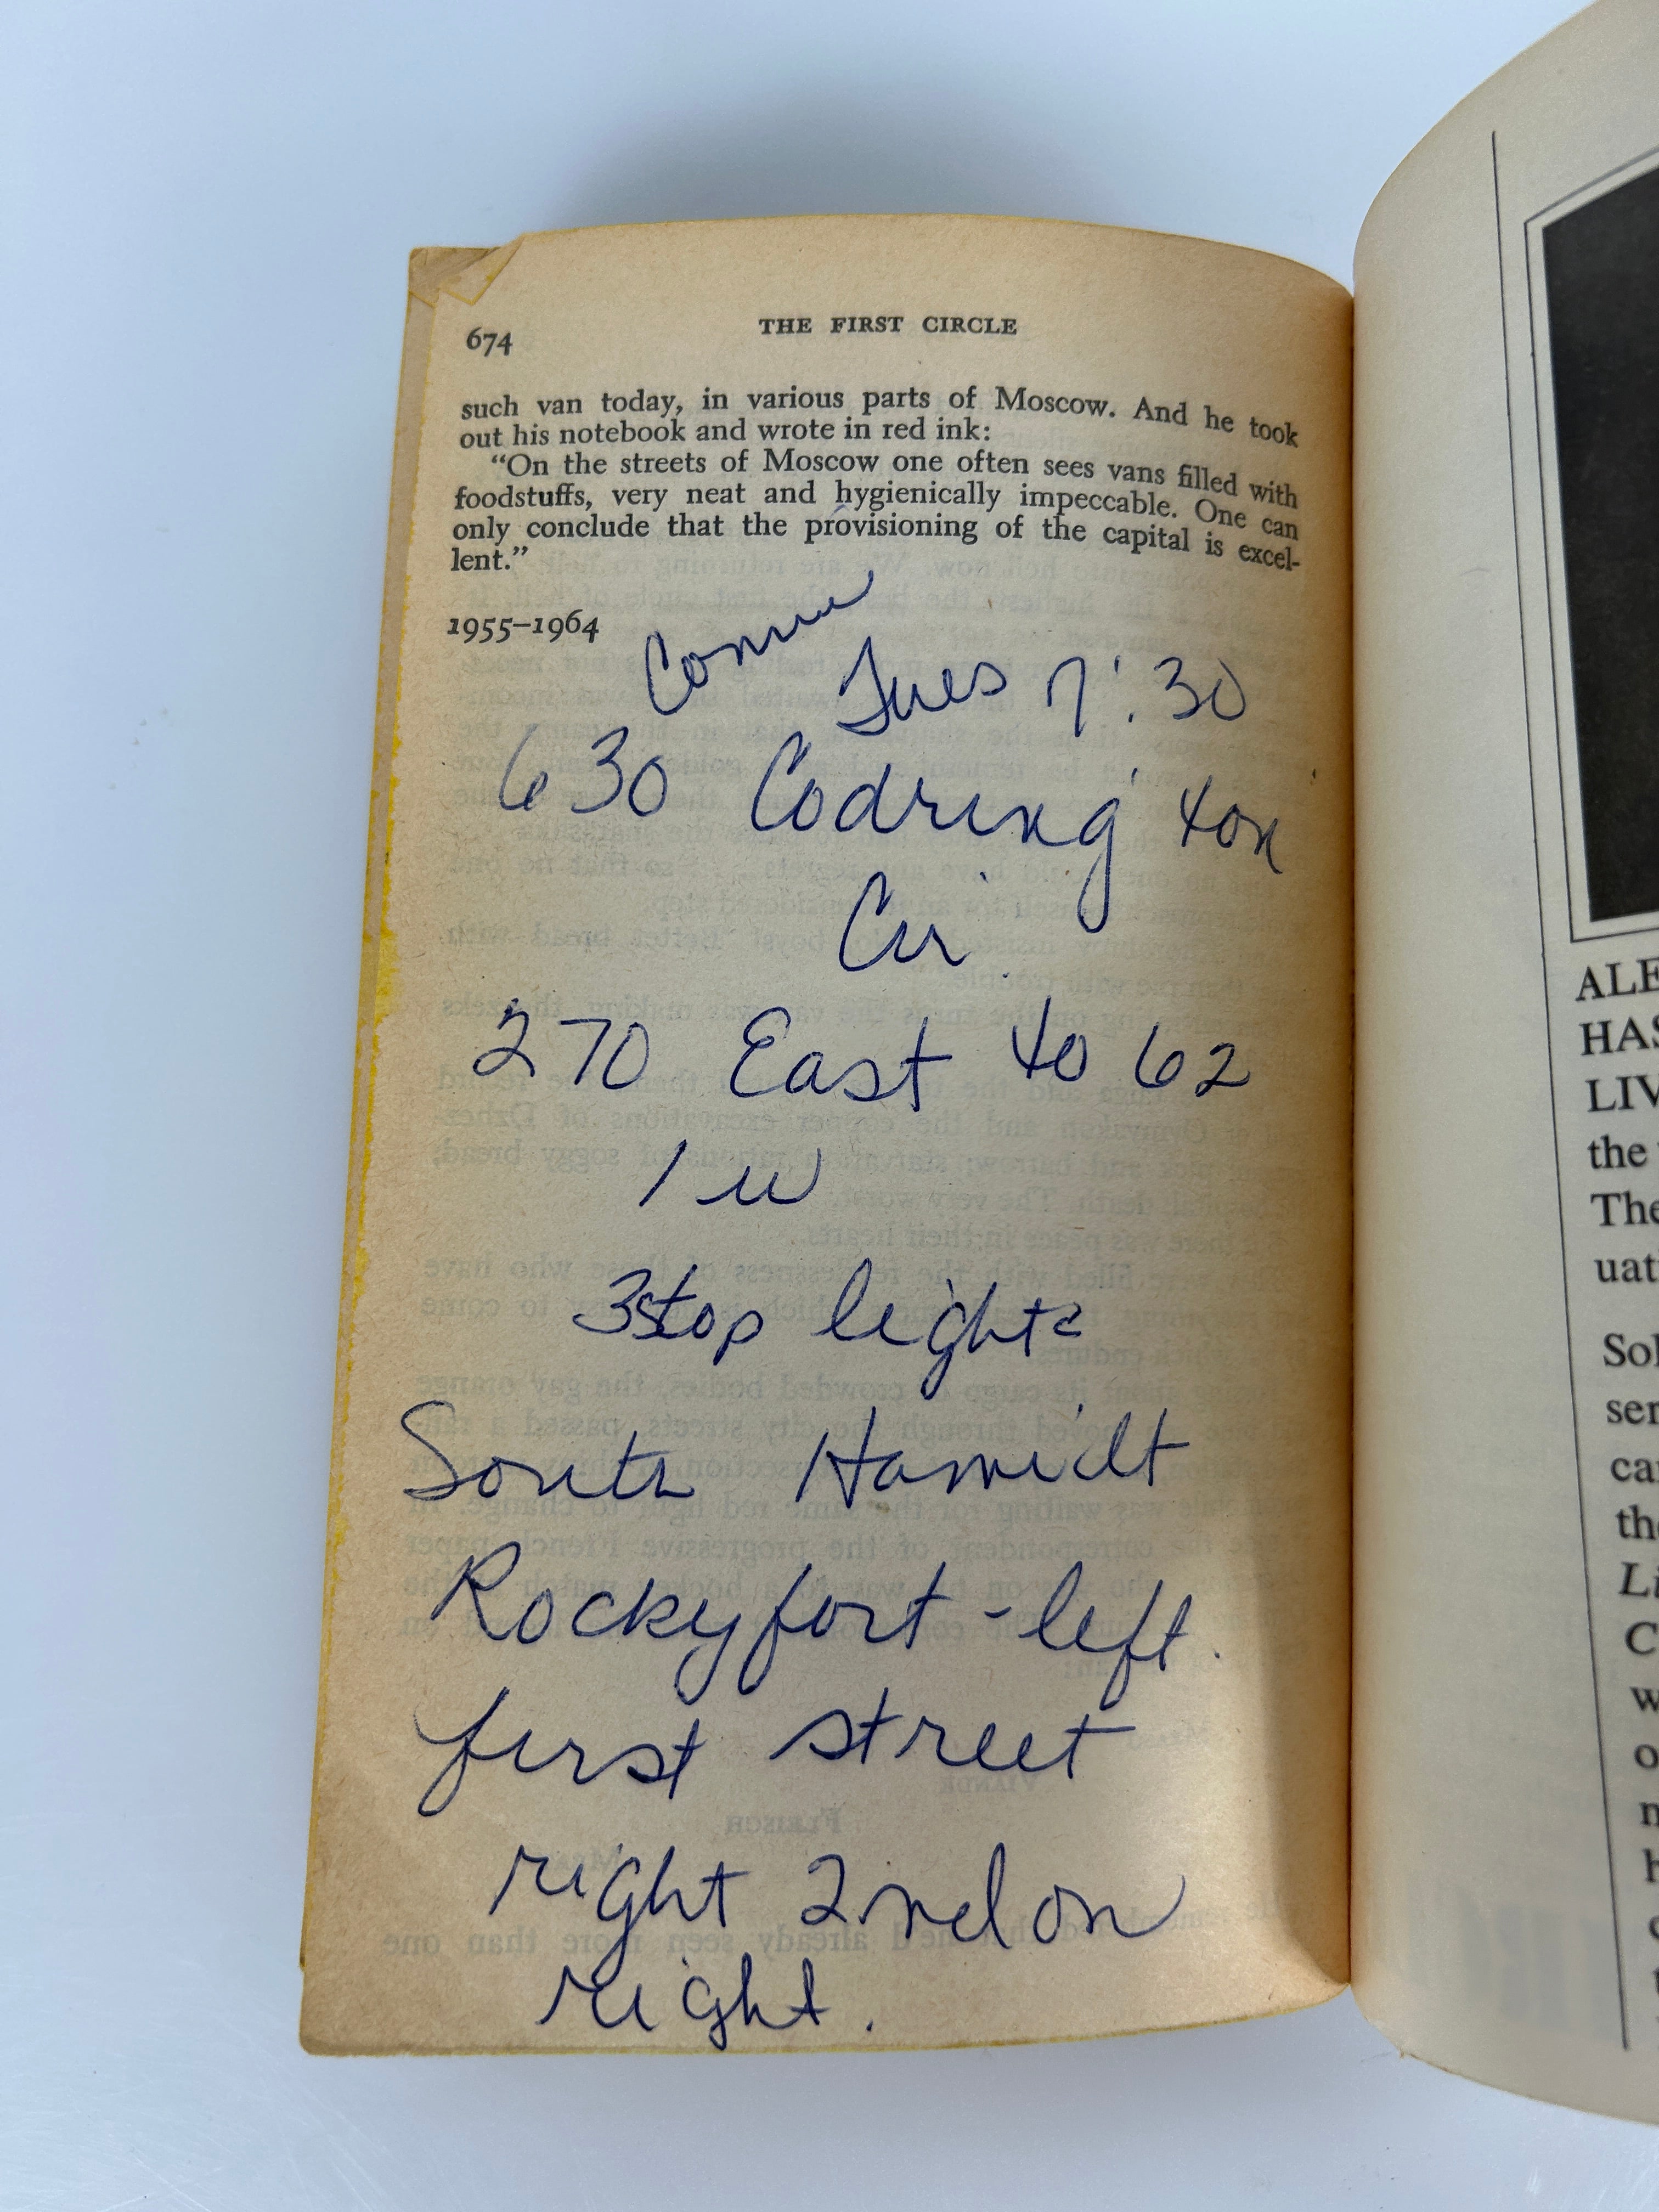 674
THE FIRST CIRCLE
such van today, in various parts of Moscow. And he took
out his notebook and wrote in red ink:
"On the streets of Moscow one often sees vans filled with
foodstuffs, very neat and hygienically impeccable. One can
only conclude that the provisioning of the capital is excel-
lent."
1955–1964
Connie
Tues 7:30
630 Codrington
Cir.
270 East to 62
1 W
3 stop lights
South Hamidt
Rockyfort - left.
first street
right 2nd on
right.
ALE
HAS
LIV
the
The
uat
Sol
ser
ca
th
Li
C
w
o